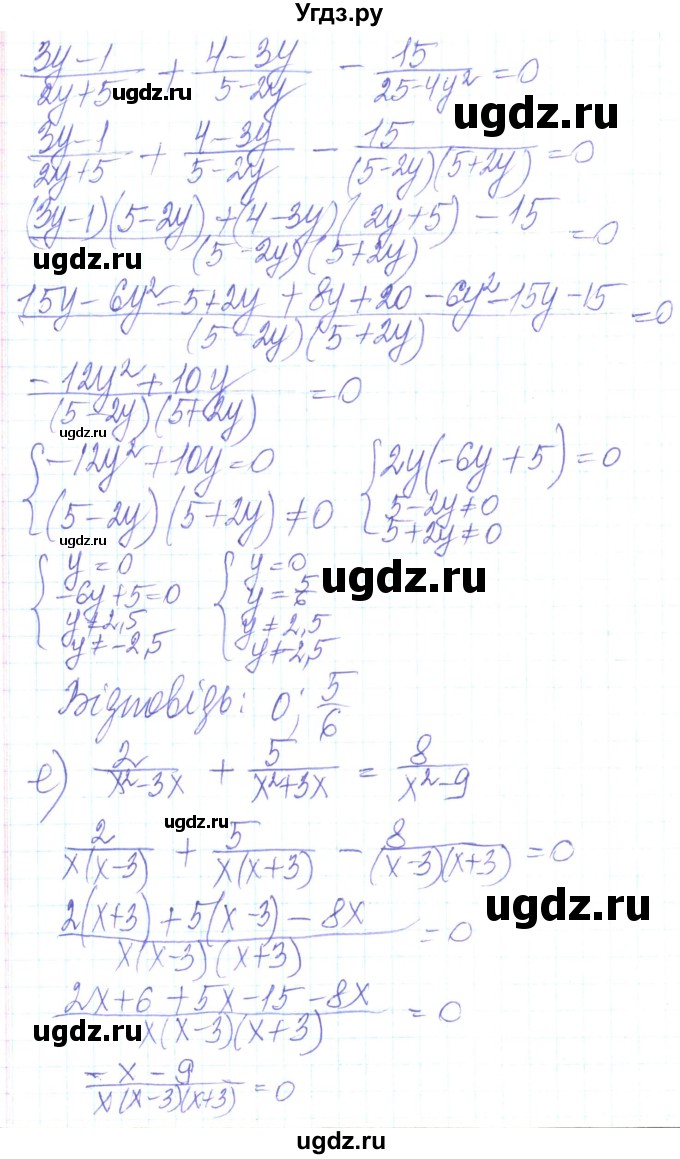 Угдз.ру
(3y-1)/(2y+5) + (4-3y)/(5-2y) - 15/(25-4y²) = 0
ugdz.ru
ugdz.ru
(3y-1)/(2y+5) + (4-3y)/(5-2y) - 15/((5-2y)(5+2y)) = 0
((3y-1)(5-2y)+(4-3y)(2y+5)-15)/((5-2y)(5+2y)) = 0
ugdz.ru
(15y-6y²-5+2y+8y+20-6y²-15y-15)/((5-2y)(5+2y)) = 0
(-12y²+10y)/((5-2y)(5+2y)) = 0
ugdz.ru
{-12y²+10y=0 {2y(-6y+5)=0
(5-2y)(5+2y)≠0 5-2y≠0
5+2y≠0
ugdz.ru
{y=0 {y=0
-6y+5=0 y=5/6
ugdz.ru
y≠2,5 y≠2,5
y≠-2,5 y≠-2,5
Відповідь: 0; 5/6
е) 2/(x²-3x) + 5/(x²+3x) = 8/(x²-9)
ugdz.ru
2/(x(x-3)) + 5/(x(x+3)) - 8/((x-3)(x+3)) = 0
ugdz.ru
(2(x+3)+5(x-3)-8x)/(x(x-3)(x+3)) = 0
(2x+6+5x-15-8x)/(x(x-3)(x+3)) = 0
ugdz.ru
(-x-9)/(x(x-3)(x+3)) = 0
ugdz.ru